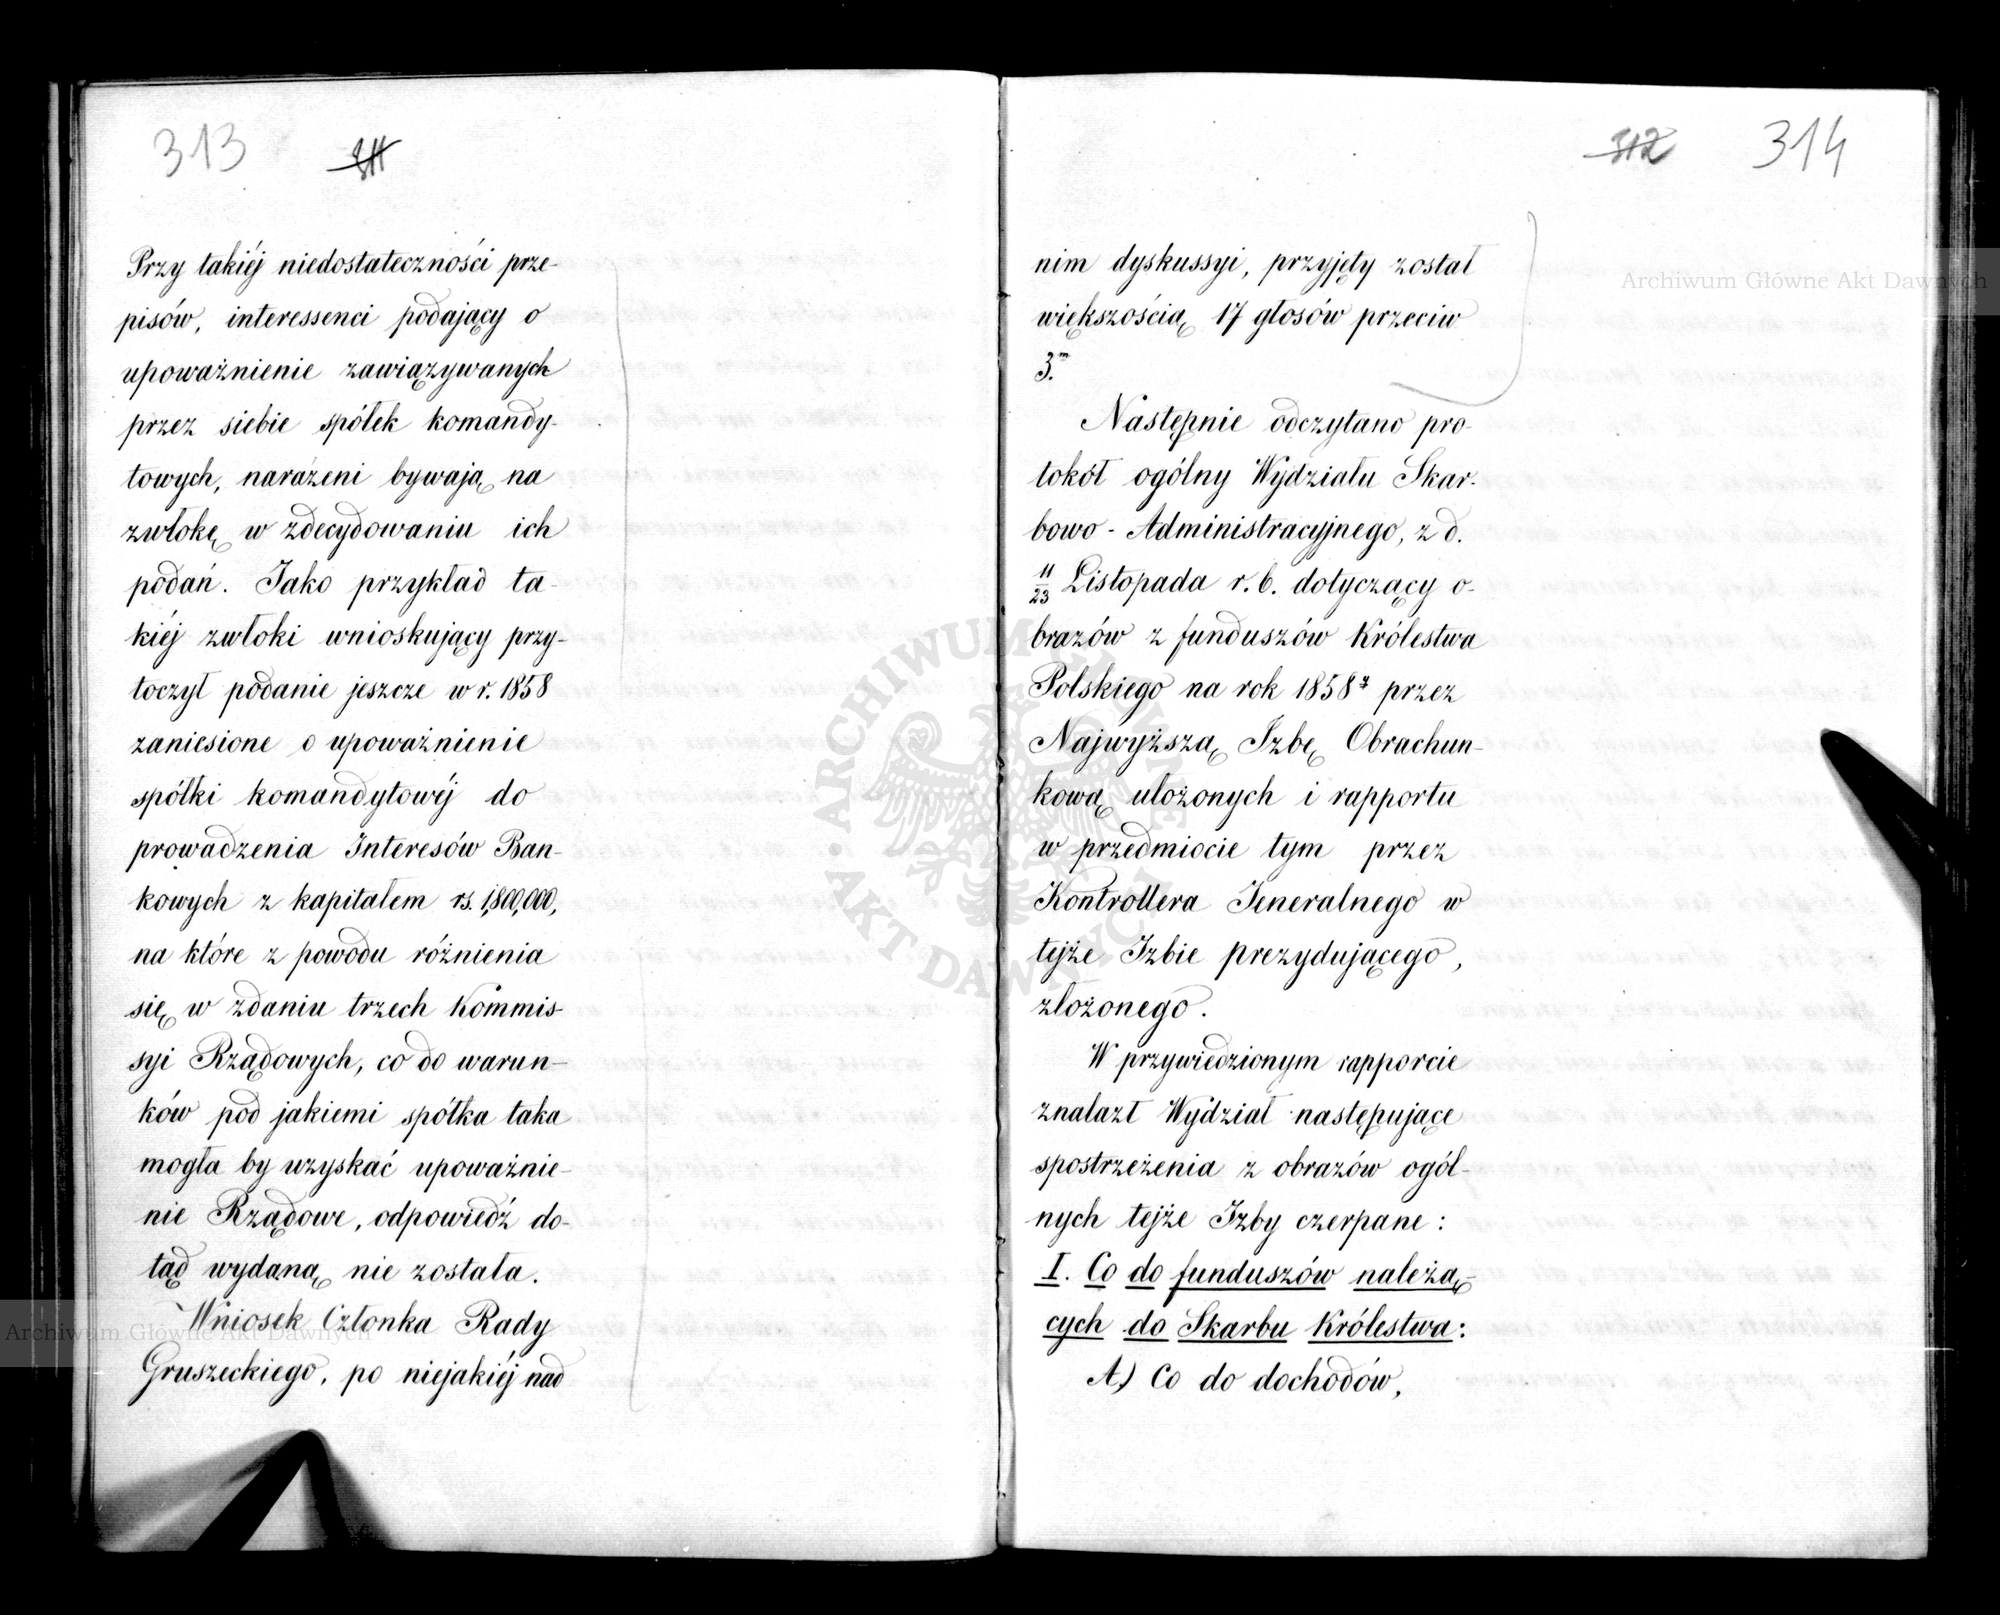 313 311
Przy takiéj niedostateczności prze-
pisów, interessenci podający o
upoważnienie zawiązywanych
przez siebie spółek komandy-
towych, narażeni bywają na
zwłokę w zdecydowaniu ich
podań. Jako przykład ta-
kiéj zwłoki wnioskujący przy-
toczył podanie jeszcze w r. 1858
zaniesione o upoważnienie
spółki komandytowéj do
prowadzenia Interesów Ban-
kowych z kapitałem rs. 1,800,000,
na które z powodu różnienia
się w zdaniu trzech Kommis-
syi Rządowych, co do warun-
ków pod jakiemi spółka taka
mogła by uzyskać upoważnie-
nie Rządowe, odpowiedź do-
tąd wydaną nie została.
Wniosek Członka Rady
Gruszeckiego, po niejakiéj nad
312 314
nim dyskussyi, przyjęty został
większością 17 głosów przeciw
3.m
Następnie odczytano pro-
tokół ogólny Wydziału Skar-
bowo-Administracyjnego, z d.
11/23 Listopada r. b. dotyczący o-
brazów z funduszów Królestwa
Polskiego na rok 1858y przez
Najwyższą Izbę Obrachun-
kową ułożonych i rapportu
w przedmiocie tym przez
Kontrollera Jeneralnego w
tejże Izbie prezydującego,
złożonego.
W przywiedzionym rapporcie
znalazł Wydział następujące
spostrzeżenia z obrazów ogól-
nych tejże Izby czerpane:
I. Co do funduszów należą-
cych do Skarbu Królestwa:
A) Co do dochodów,
Archiwum Główne Akt Dawnych
Archiwum Główne Akt Dawnych
ARCHIWUM GŁÓWNE
AKT DAWNYCH